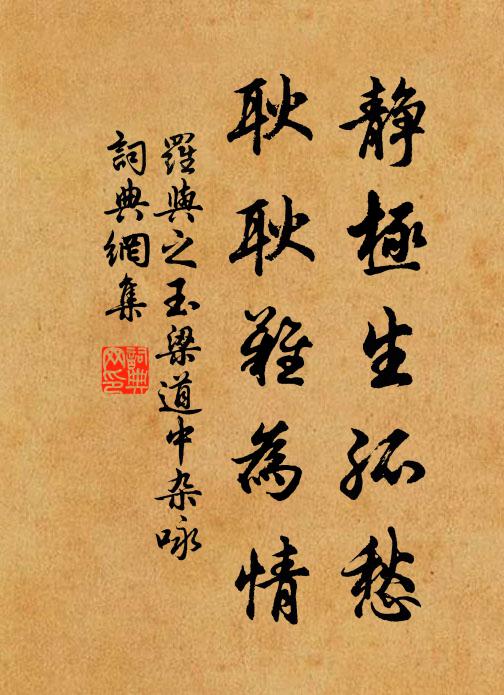 静極生孤愁
耿耿難為情
羅與之玉梁道中杂咏
詞典網集
詞典网印